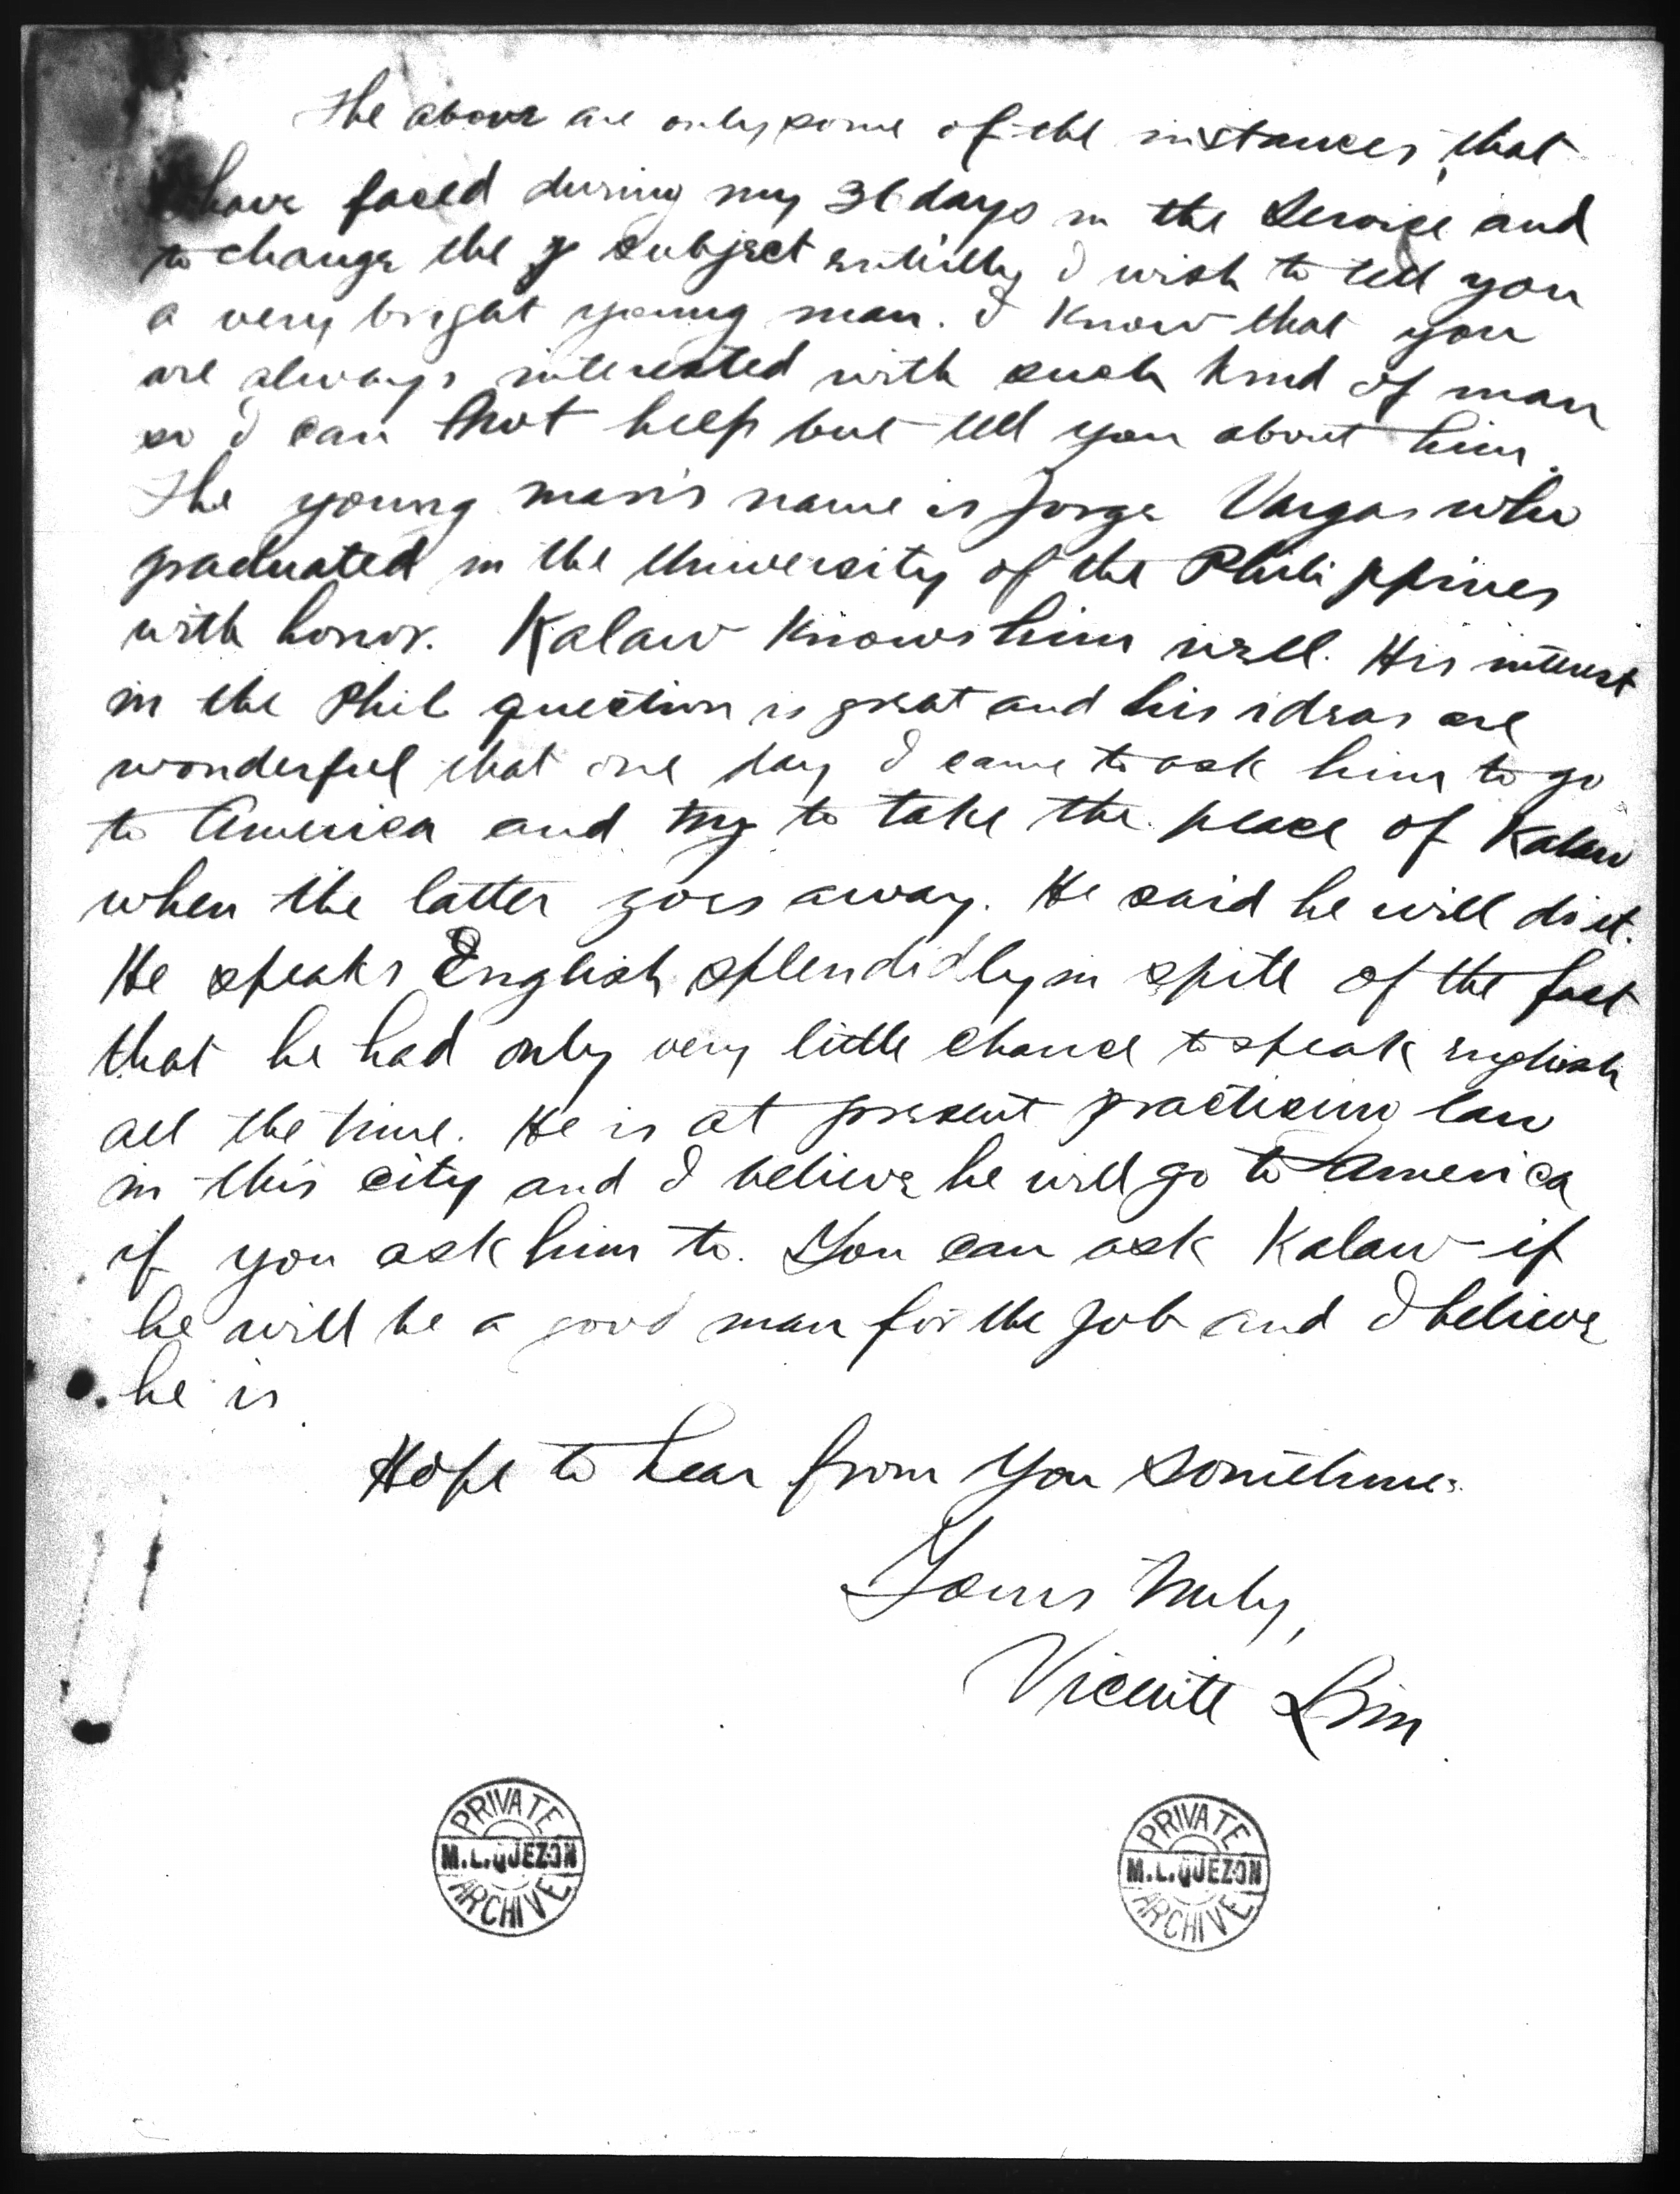 The above are only some of the instances that
have faced during my 36 days in the Service and
to change the subject entirelly I wish to tell you
a very bright young man. I know that you
are always interested with such kind of man
so I can not help but tell you about him.
The young man's name is Jorge Vargas who
graduated in the University of the Philippines
with honor. Kalaw knows him well. His interest
in the Phil question is great and his ideas are
wonderful that one day I came to ask him to go
to America and try to take the place of Kalaw
when the latter goes away. He said he will do it.
He speaks English splendidly in spite of the fact
that he had only very little chance to speak english
all the time. He is at present practicing law
in this city and I believe he will go to America
if you ask him to. You can ask Kalaw if
he will be a good man for the job and I believe
he is
Hope to hear from you sometimes.
Yours truly,
Vicente Lim
PRIVATE
M.L.QUEZON
ARCHIVE
PRIVATE
M.L.QUEZON
ARCHIVE